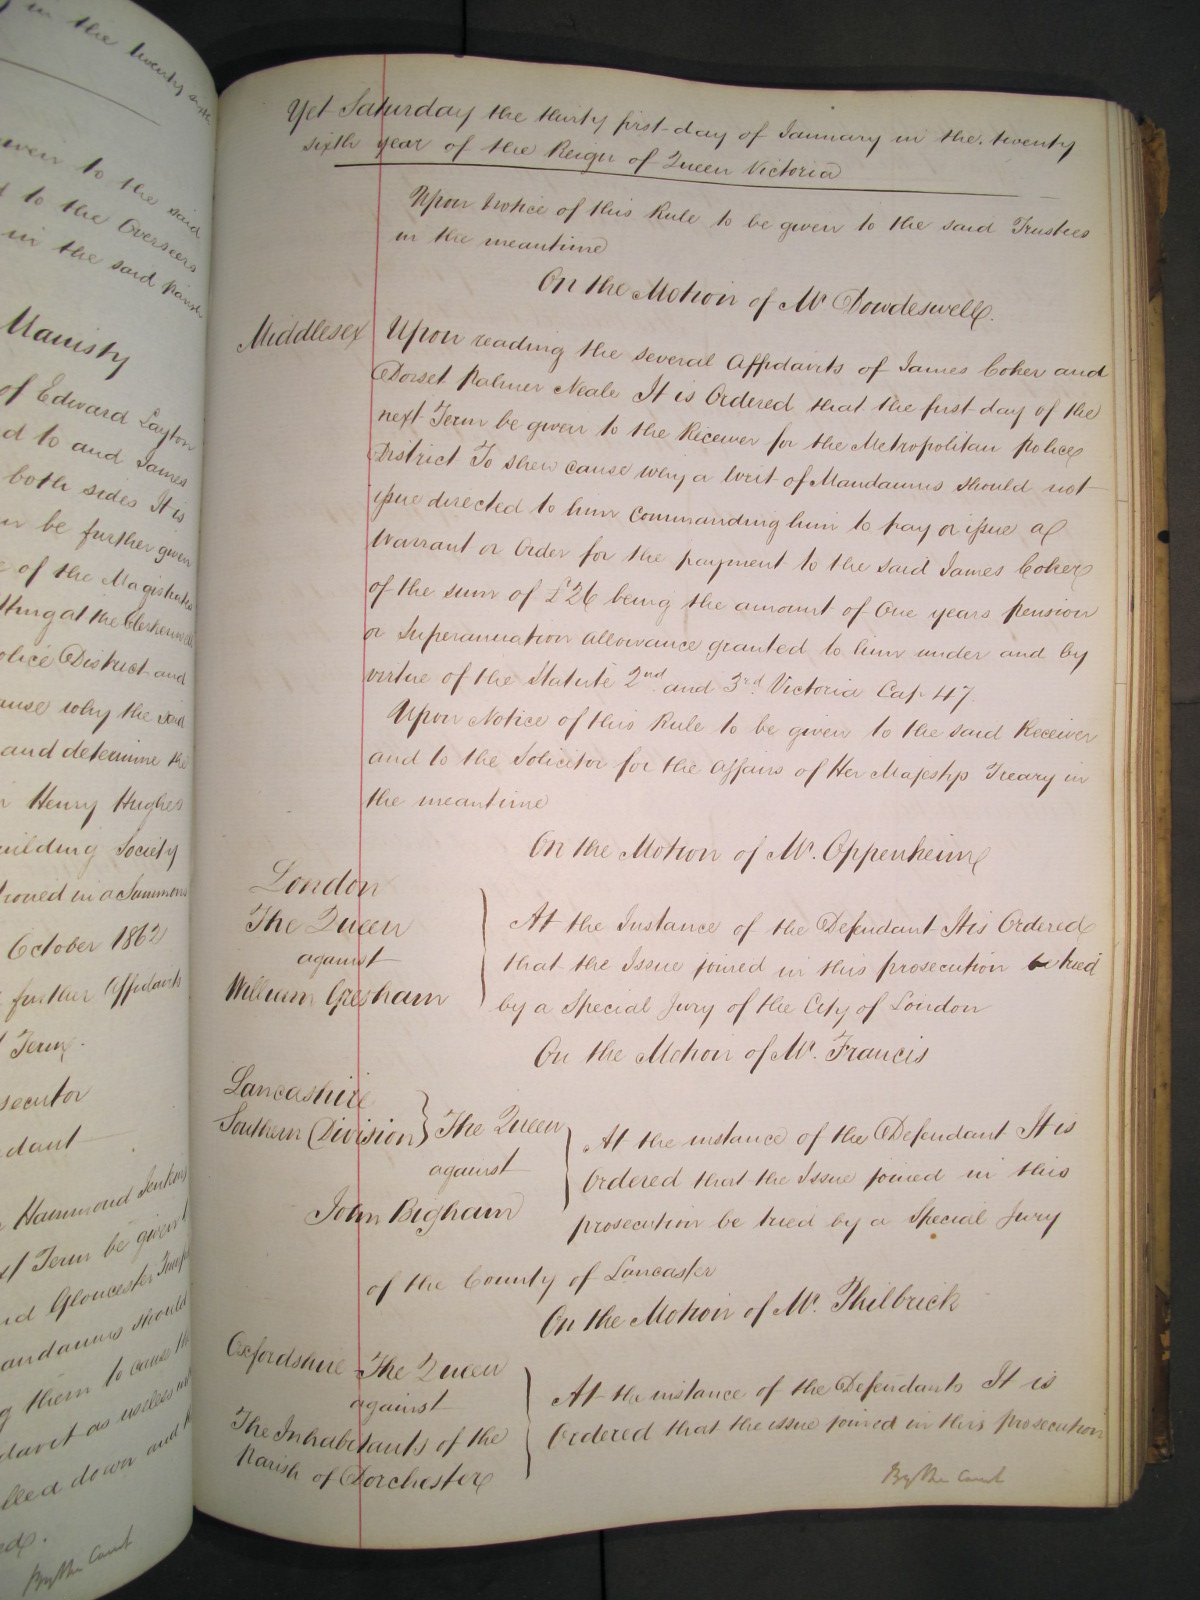 in the twenty sixth
given to the said
to the Overseers
in the said parish
Manisty
of Edward Layton
d to and James
both sides It is
be further given
of the Magistrates
tting at the Clerkenwell
olice District and
ause why the said
and determine the
Henry Hughes
uilding Society
tioned in a Summons
October 1862
further Affidavits
Term.
secutor
dant
Hammond Jenkins
xt Term be given
nd Gloucester
andamus should
g them to cause the
davit as useless
lled down and
By the Court
Yet Saturday the thirty first day of January in the twenty
sixth year of the Reign of Queen Victoria
Upon Notice of this Rule to be given to the said Trustees
in the meantime
On the Motion of Mr. Dowdeswell.
Middlesex Upon reading the several Affidavits of James Coker and
Dorset Palmer Neale It is Ordered that the first day of the
next Term be given to the Receiver for the Metropolitan Police
District To shew cause why a Writ of Mandamus should not
issue directed to him commanding him to pay or issue a
Warrant or Order for the payment to the said James Coker
of the sum of £26 being the amount of One years pension
or Superannuation allowance granted to him under and by
virtue of the Statute 2nd and 3rd Victoria Cap 47.
Upon Notice of this Rule to be given to the said Receiver
and to the Solicitor for the Affairs of Her Majestys Treasry in
the meantime
On the Motion of Mr. Oppenheim
London
The Queen
against
William Gresham
At the Instance of the Defendant It is Ordered
that the Issue joined in this prosecution be tried
by a Special Jury of the City of London
On the Motion of Mr. Francis
Lancashire
Southern Division } The Queen
against
John Bigham
At the instance of the Defendant It is
Ordered that the Issue joined in this
prosecution be tried by a Special Jury
of the County of Lancaster
On the Motion of Mr. Philbrick
Oxfordshire The Queen
against
The Inhabitants of the
Parish of Dorchester
At the instance of the Defendants It is
Ordered that the issue joined in this prosecution
By the Court